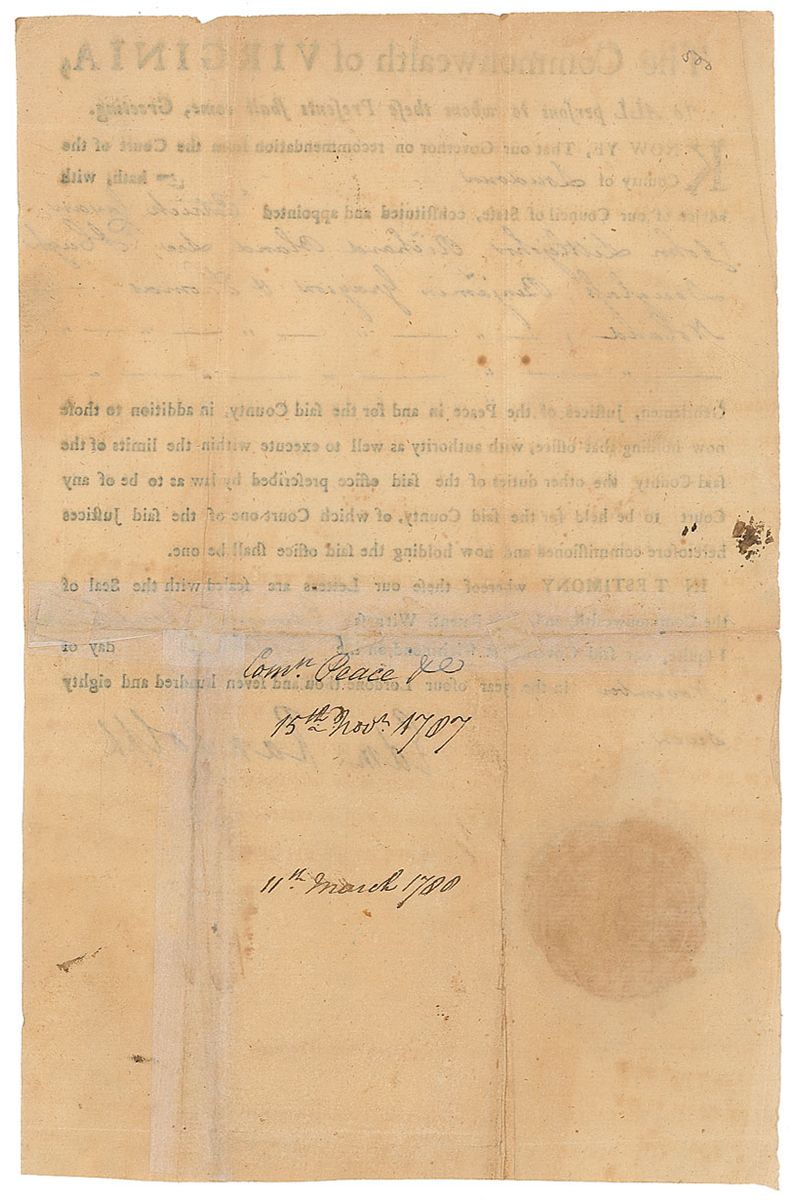 The Commonwealth of VIRGINIA,
To ALL perſons to whom theſe Preſents ſhall come, Greeting.
KNOW YE, That our Governor on recommendation from the Court of the
County of Loudoun hath, with
advice of our Council of State, conſtituted and appointed Patrick Cavan
John Littlejohn, Richard Bland Lee, Hugh
Douglaſs Benjamin Grayson & Thomas
Noland
Gentlemen, Juſtices of the Peace in and for the ſaid County, in addition to thoſe
now holding that office, with authority as well to execute within the limits of the
ſaid County the other duties of the ſaid office preſcribed by law as to be of any
Court to be held for the ſaid County, of which Court one of the ſaid Juſtices
heretofore commiſſioned and now holding the ſaid office ſhall be one.
IN TESTIMONY whereof theſe our Letters are ſealed with the Seal of
the Commonwealth and Patent. Witneſs
Eſquire, our ſaid Governor at Richmond, on the day of
November in the year of our Lord one thouſand ſeven hundred and eighty
seven
Edm. Randolph
Comn. Peace &c
15th Novr. 1787
11th March 1788